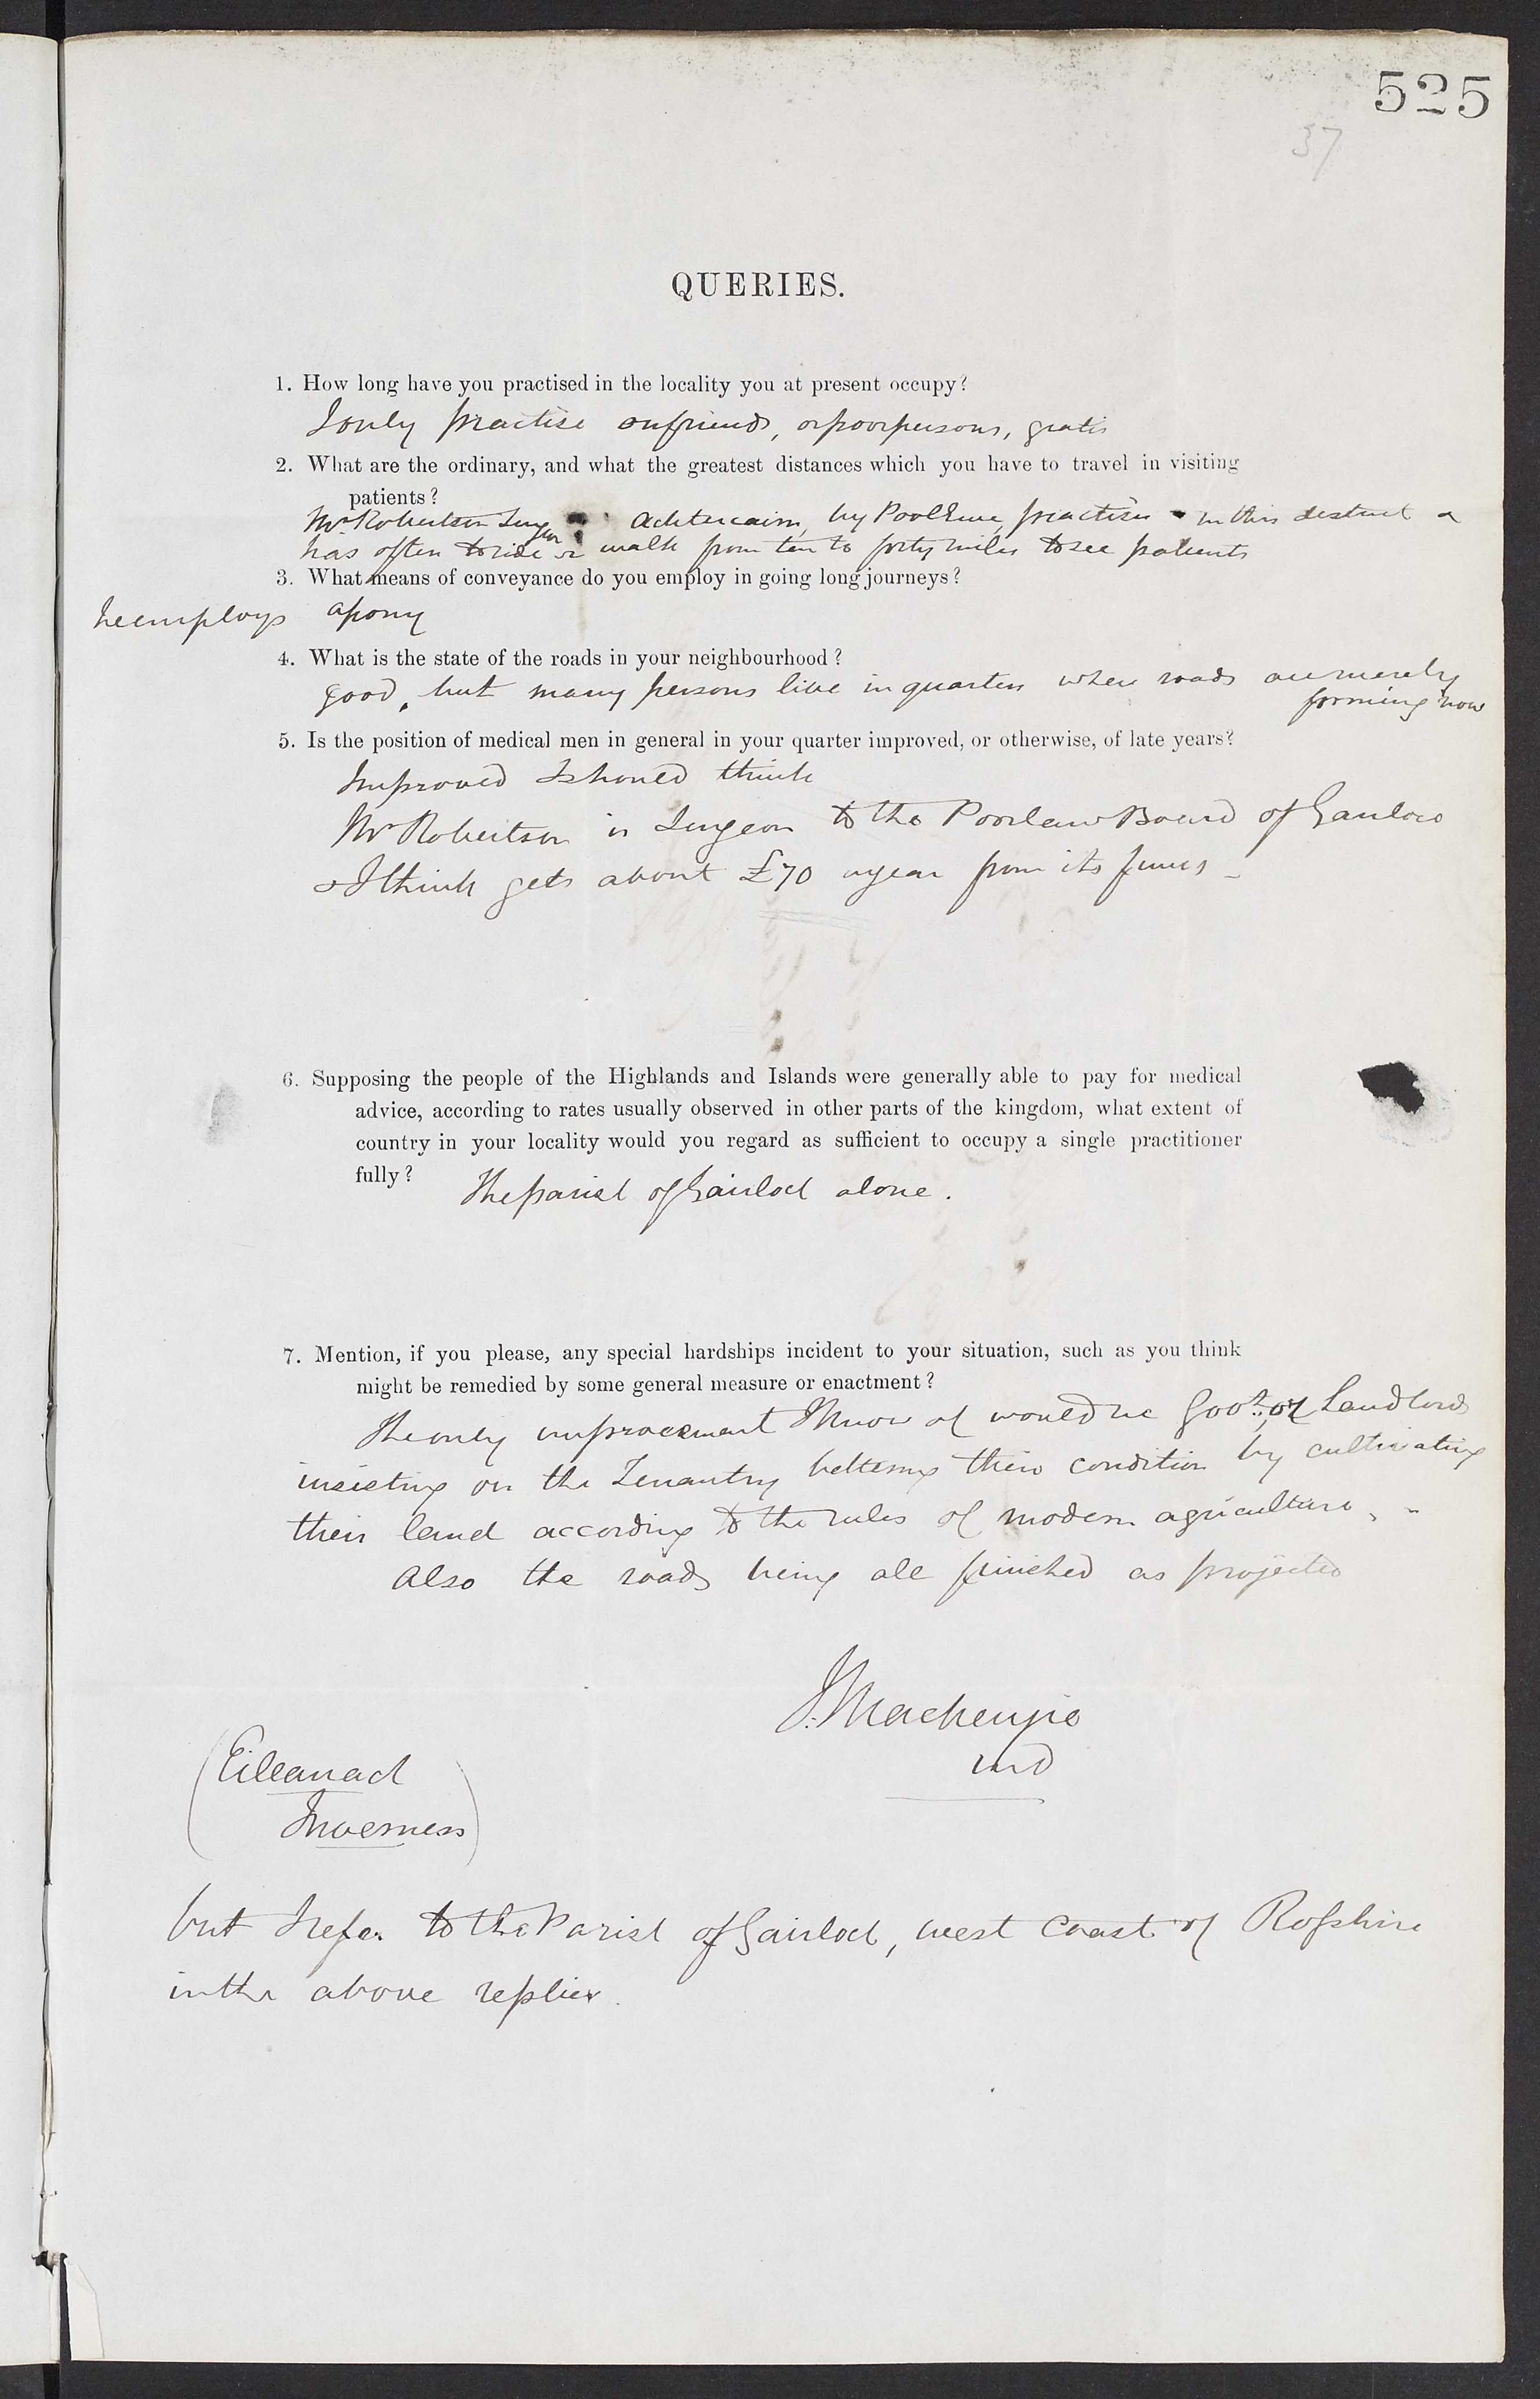 525
37
QUERIES.
1. How long have you practised in the locality you at present occupy?
I only practise on friends, or poor persons, gratis
2. What are the ordinary, and what the greatest distances which you have to travel in visiting
patients?
Mr Robertson Surgeon Achtercairn, by PoolEwe, practises in this district &
has often to ride or walk from ten to forty miles to see patients
3. What means of conveyance do you employ in going long journeys?
he employs a pony
4. What is the state of the roads in your neighbourhood?
good, but many persons live in quarters where roads are merely
forming now
5. Is the position of medical men in general in your quarter improved, or otherwise, of late years?
Improved I should think
Mr Robertson is Surgeon to the Poorlaw Board of Gairloch
& I think gets about £70 a year from its funds -
6. Supposing the people of the Highlands and Islands were generally able to pay for medical
advice, according to rates usually observed in other parts of the kingdom, what extent of
country in your locality would you regard as sufficient to occupy a single practitioner
fully?
The parish of Gairloch alone.
7. Mention, if you please, any special hardships incident to your situation, such as you think
might be remedied by some general measure or enactment?
The only improvement I know of would be Govt. or Landlords
insisting on the Tenantry bettering their condition by cultivating
their land according to the rules of modern agriculture, -
Also the roads being all finished as projected
J. Mackenzie
MD
(Eileanach
Inverness)
but I refer to the Parish of Gairloch, west coast of Rossshire
in the above replies.